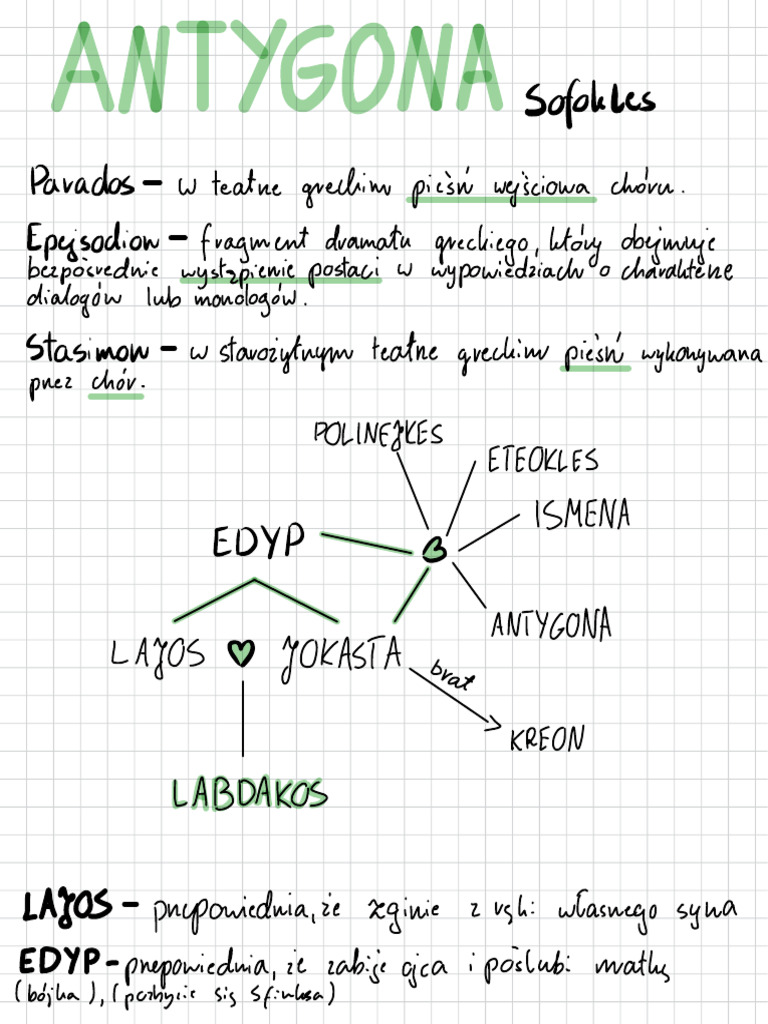 ANTYGONA Sofokles
Parados – w teatrze greckim pieśń wejściowa chóru.
Epejsodion – fragment dramatu greckiego, który obejmuje
bezpośrednie wystąpienie postaci w wypowiedziach o charakterze
dialogów lub monologów.
Stasimon – w starożytnym teatrze greckim pieśń wykonywana
przez chór.
POLINEJKES
ETEOKLES
ISMENA
EDYP
ANTYGONA
LAJOS JOKASTA
brat
KREON
LABDAKOS
LAJOS – przepowiednia, że zginie z ręki własnego syna
EDYP – przepowiednia, że zabije ojca i poślubi matkę
(bójka), (pozbycie się Sfinksa)